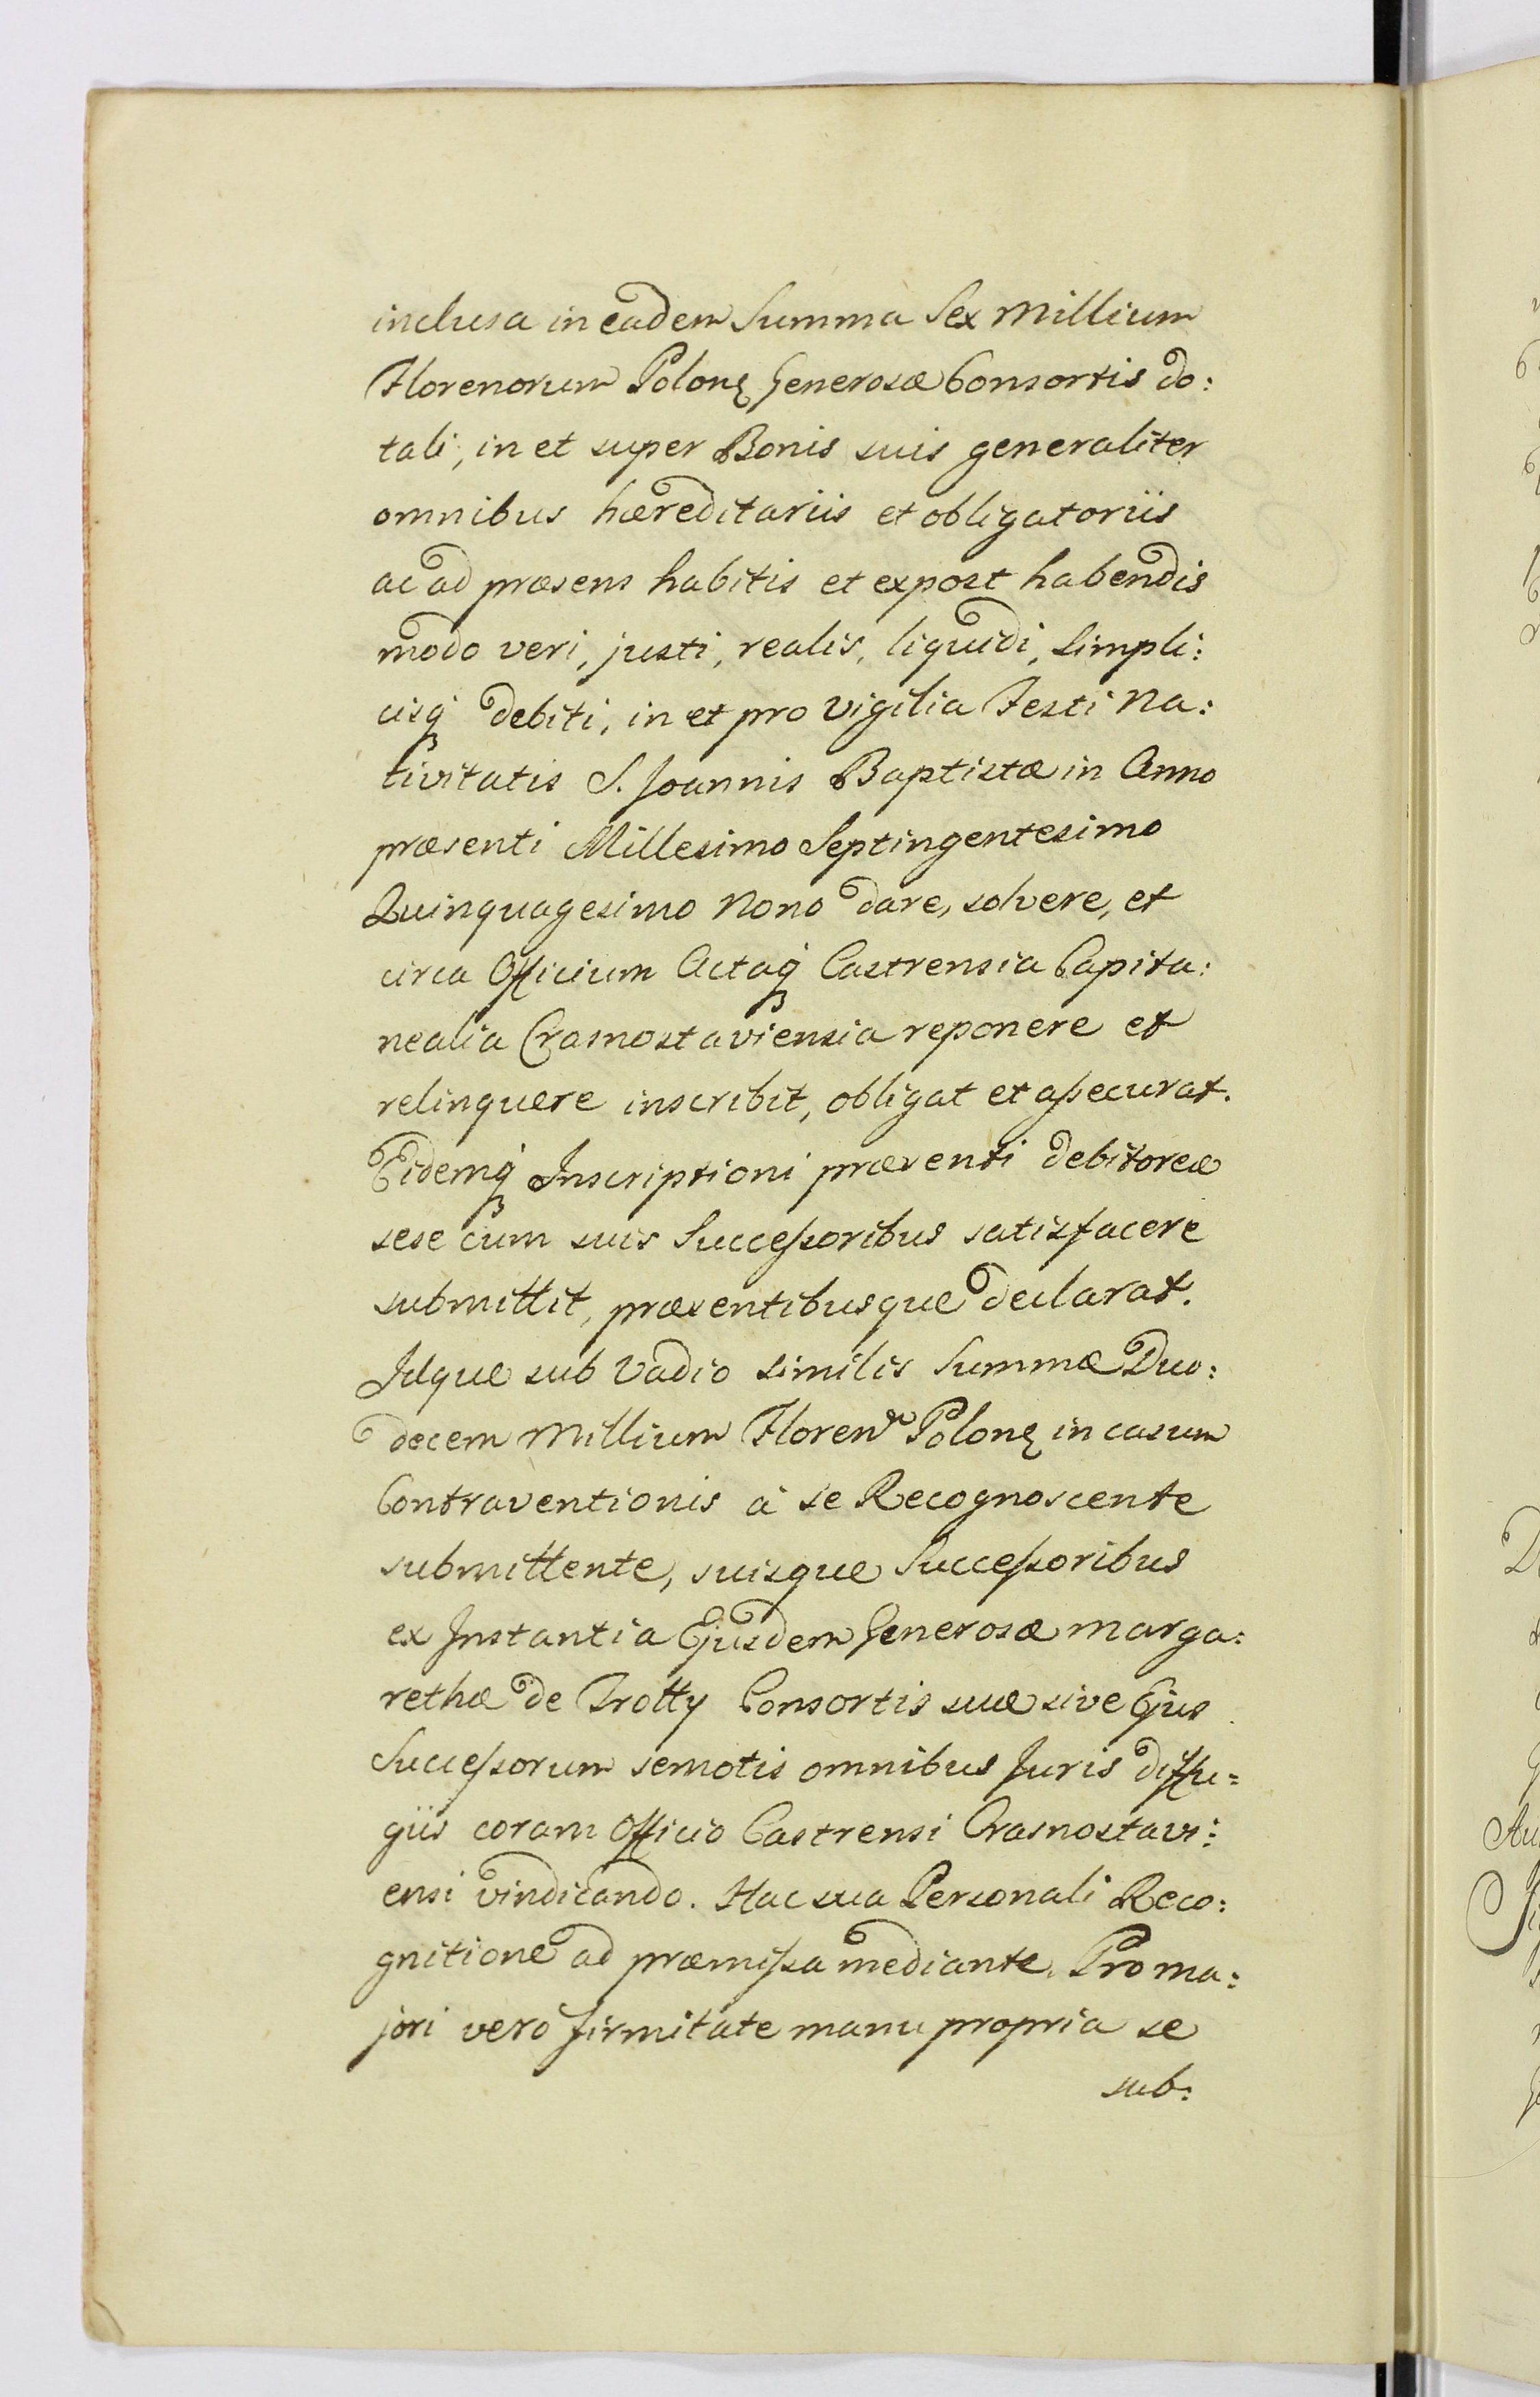 inclusa in eadem Summa Sex Millium
Florenorum Polonę Generosæ Consortis do:
tali, in et super Bonis suis generaliter
omnibus hæreditariis et obligatoriis
ac ad præsens habitis et expost habendis
modo veri, justi, realis, liquidi, simpli:
cisq; debiti, in et pro Vigilia Festi Na:
tivitatis S. Joannis Baptistæ in Anno
præsenti Millesimo Septingentesimo
Quinquagesimo Nono dare, solvere, et
circa Officium Actaq; Castrensia Capita:
nealia Crasnostaviensia reponere et
relinquere inscribit, obligat et assecurat.
Eidemq; Inscriptioni præsenti debitoreæ
sese cum suis Successoribus satisfacere
submittit, præsentibusque declarat.
Idque sub Vadio similis Summæ Duo:
decem Millium Floren Polonę in casum
Contraventionis à se Recognoscente
submittente, suisque Successoribus
ex Instantia Ejusdem Generosæ Marga:
rethæ de Trotty Consortis suæ sive Ejus
Successorum semotis omnibus Juris diffu=
giis coram Officio Castrensi Crasnostavi:
ensi vindicando. Hac sua Personali Reco:
gnitione ad præmissa mediante. Pro ma:
jori verò firmitate manu propria se
sub: